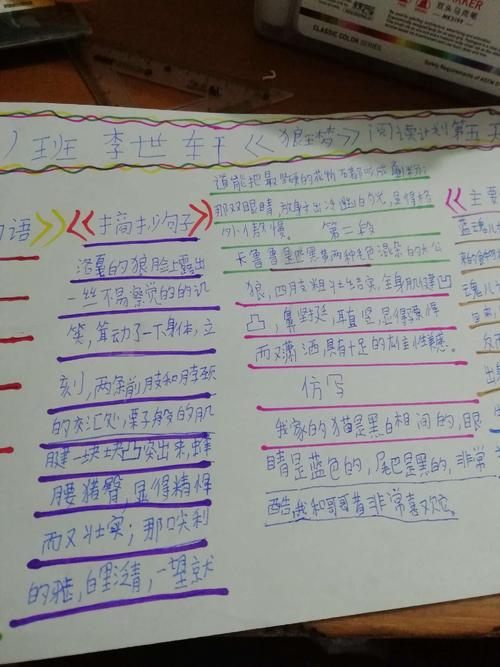 MARKER
双头马克笔
MK3199
CLASSIC COLOR SERIES
Safety Requirements of AST
)班 李世轩《狼王梦》阅读计划第五
词语
摘抄句子
洛戛的狼脸上露出
一丝不易察觉的的讥
笑,耸动了一下身体,立
刻,两条前肢和脖颈
的交汇处,栗子般的肌
腱一块块凸突出来,蜂
腰猎臀,显得精悍
而又壮实;那口尖利
的牙,白里泛青,一望就
道能把最坚硬的花狗石都咬成
那双眼睛,放射出冷幽的白光,显得格
外傲慢 第二段
卡鲁鲁是匹黑黄两种毛色混杂的大公
狼,四肢粗壮结实,全身肌腱凹
凸,鼻竖挺,耳直竖,显得骠悍
而又潇洒,具有十足的雄性美感。
仿写
我家的猫是黑白相间的,眼
睛是蓝色的,尾巴是黑的,非常
酷,我和哥哥昔非常喜欢它。
主要
蓝魂儿
魂儿